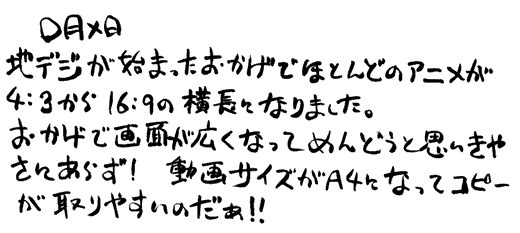 ○月×日
地デジが始まったおかげでほとんどのアニメが
4:3から16:9の横長になりました。
おかげで画面が広くなってめんどうと思いきや
さにあらず! 動画サイズがA4になってコピー
が取りやすいのだぁ!!